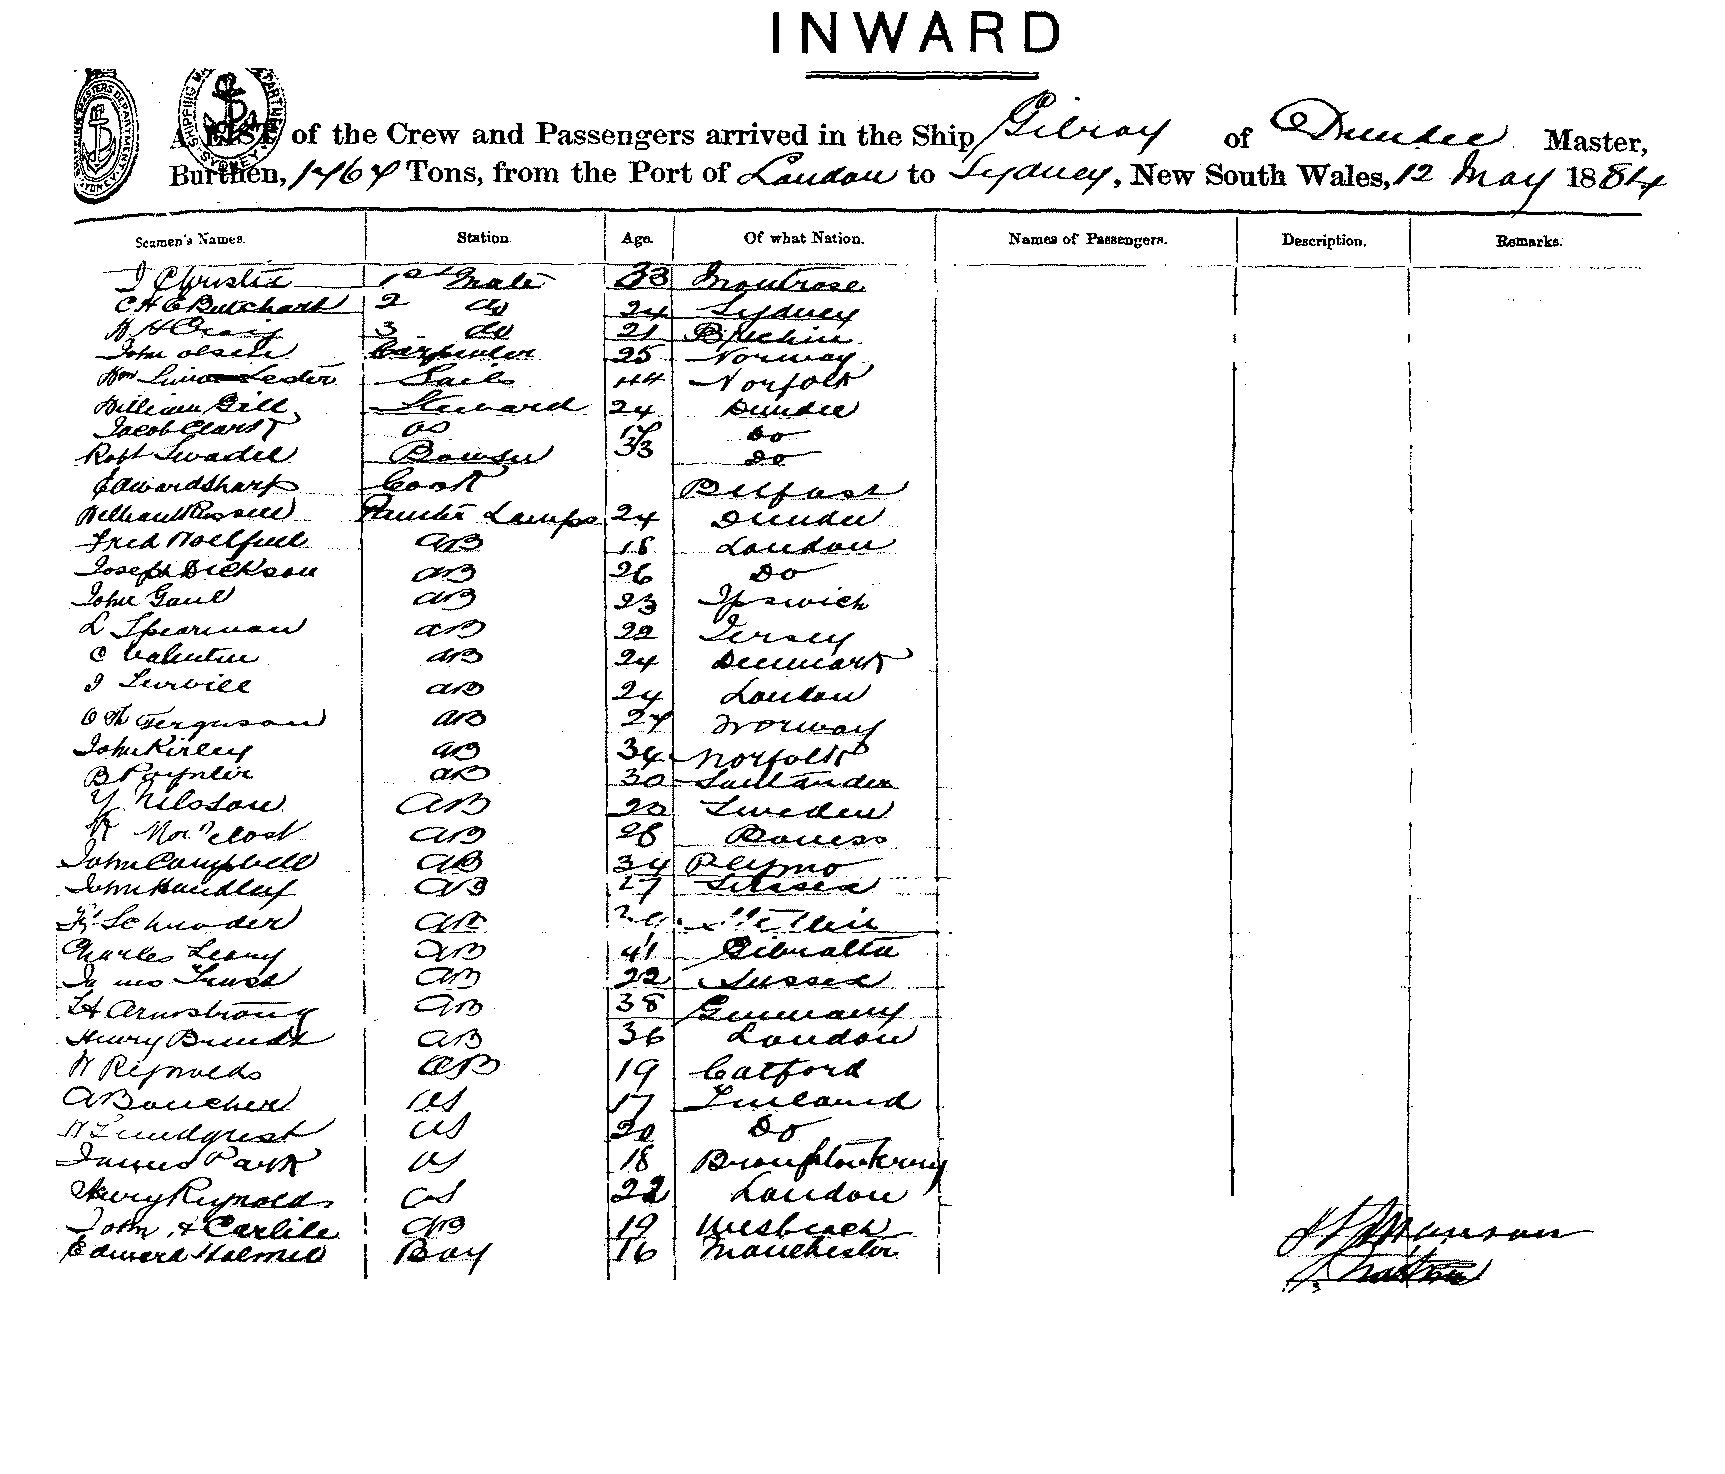 INWARD
A LIST of the Crew and Passengers arrived in the Ship Gilroy of Dundee Master,
Burthen, 1764 Tons, from the Port of London to Sydney, New South Wales, 12 May 1884
Seamen's Names. Station Age. Of what Nation. Names of Passengers. Description. Remarks.
J Christie 1st Mate 33 Montrose
C H E Butchart 2 do 24 Sydney
W H Craig 3 do 21 Brechin
John Olsen Carpenter 25 Norway
Wm Lester Sails 44 Norfolk
William Gill Steward 24 Dundee
Jacob Clark OS 17 Do
Robt Swadel 33 Do
Edward Sharp Cook Belfast
William Russell Lamps 24 Dundee
Fred 18 London
Joseph Dickson AB 26 Do
John Gaul AB 23 Ipswich
L Spearman AB 22 Jersey
C Valentin AB 24 Denmark
J Survill AB 24 London
Ferguson AB 27 Norway
John Kirley AB 34 Norfolk
B Poynter AB 30
Nilsson AB 20 Sweden
AB 28 Boness
John Campbell AB 34 Plymo
John Handley AB 27 Sussex
Schroder AB
Charles Leary AB 41 Gibralta
James Trust AB 22 Sussex
Armstrong AB 38 Germany
Henry AB 36 London
W Reynolds AB 19 Catford
A Boucher OS 17 Finland
Lundqvist OS 20 Do
James Park OS 18
Henry Reynolds OS 22 London
John Carlile AB 19 Wesbeach
Edward Holmes Boy 16 Manchester
Manson